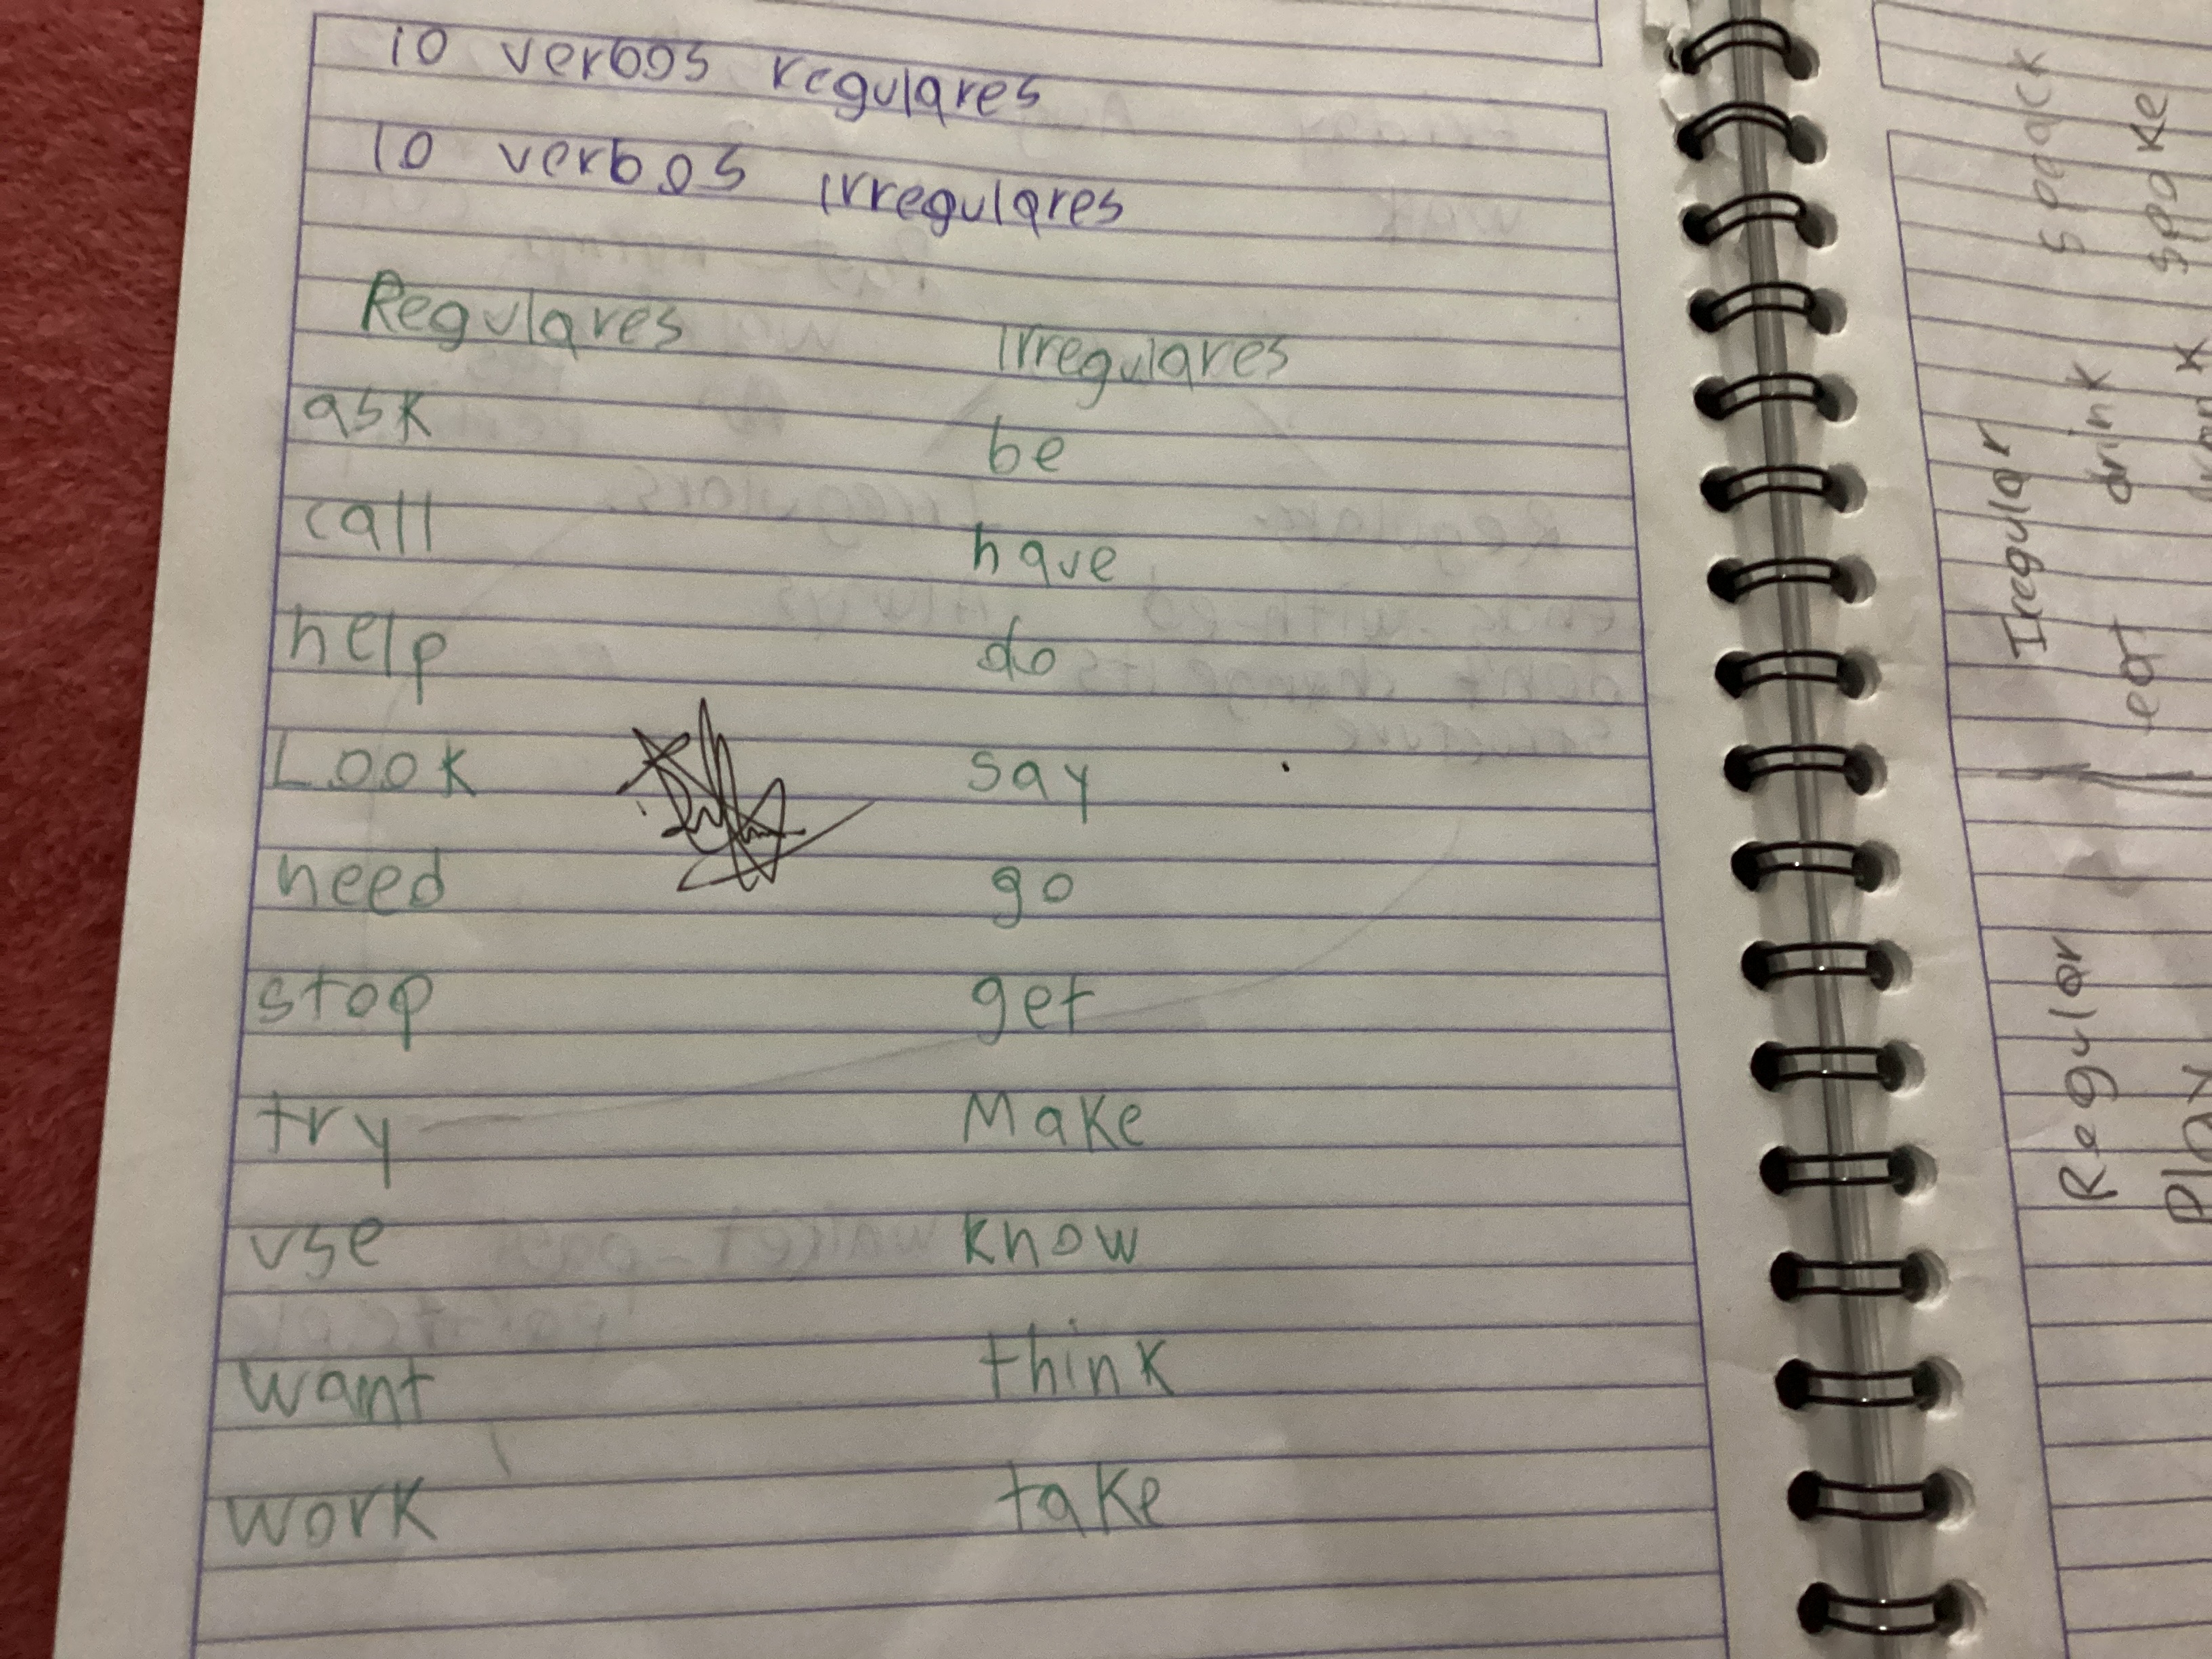 10 verbos regulares
10 verbos irregulares
Regulares Irregulares
ask be
call have
help do
Look say
need go
stop get
try Make
use know
want think
work take
Iregular speack
drink spoke
eat
Regular
Play